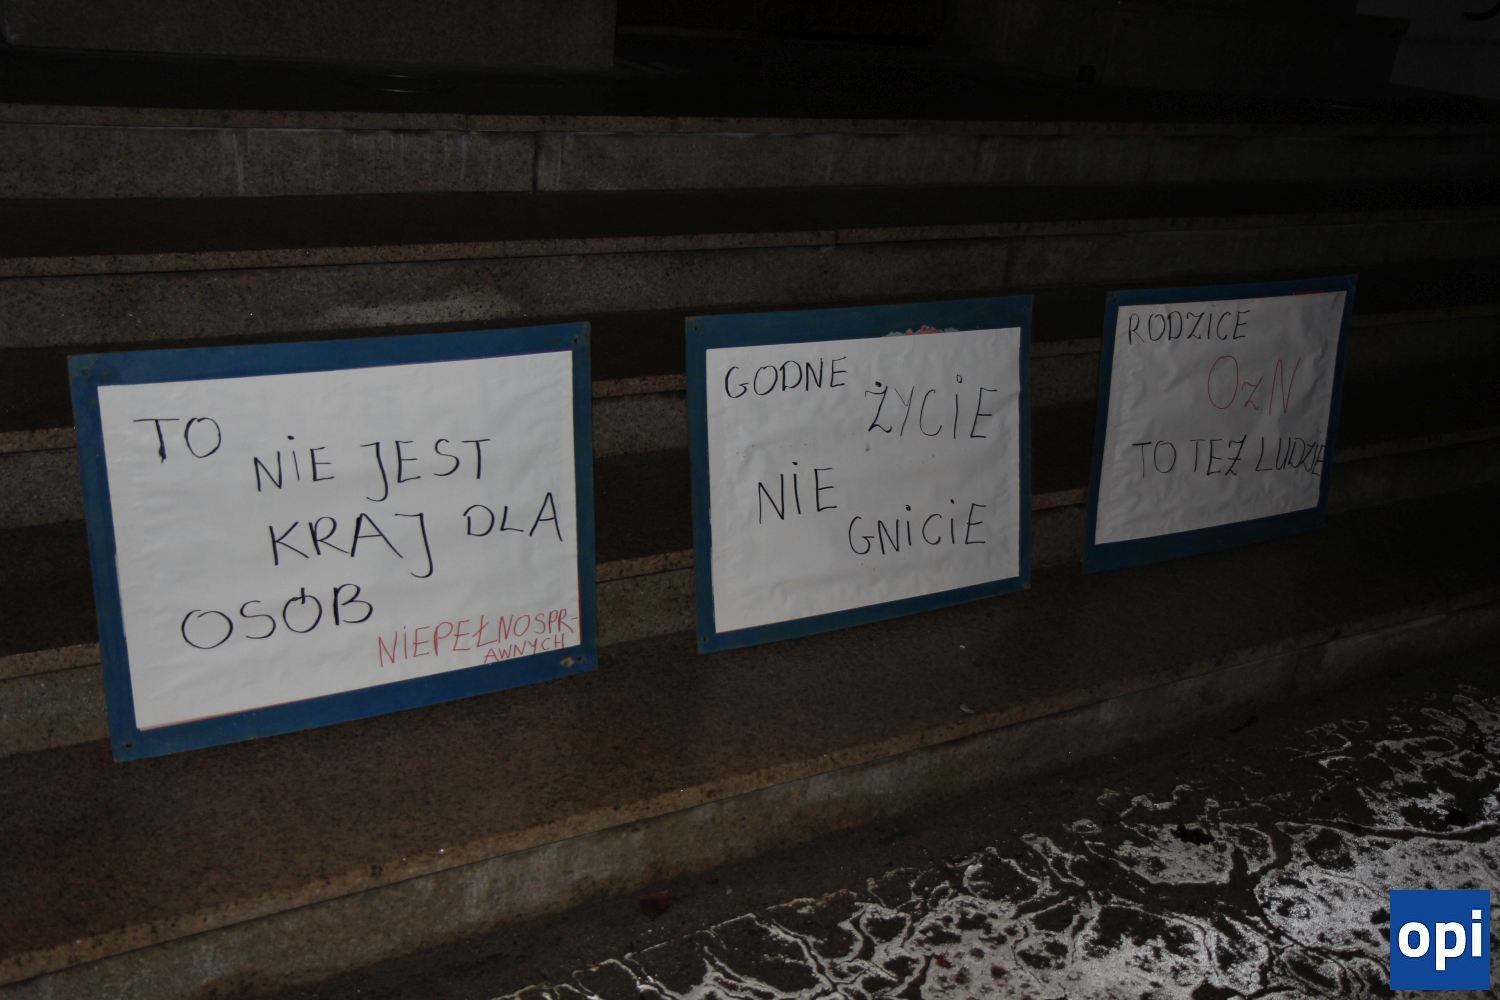 TO
NIE JEST
KRAJ DLA
OSÓB
NIEPEŁNOSPR-
AWNYCH
GODNE
ŻYCIE
NIE
GNICIE
RODZICE
OzN
TO TEŻ LUDZIE
opi